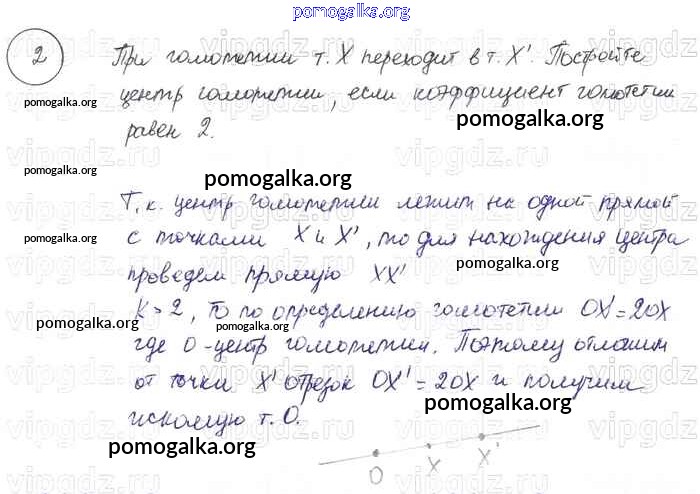 pomogalka.org
2 При гомотетии т. X переходит в т. X'. Постройте
центр гомотетии, если коэффициент гомотетии
равен 2.
pomogalka.org
pomogalka.org
pomogalka.org
pomogalka.org
Т.к. центр гомотетии лежит на одной прямой
с точками X и X', то для нахождения центра
pomogalka.org
pomogalka.org
проведем прямую XX'
K = 2, то по определению гомотетии OX' = 2OX
pomogalka.org
pomogalka.org
где O - центр гомотетии. Поэтому отложим
от точки X' отрезок OX' = 2OX и получим
pomogalka.org
искомую т. O.
pomogalka.org
O X X'
pomogalka.org
vipgdz.ru vipgdz.ru vipgdz.ru vipgdz.ru